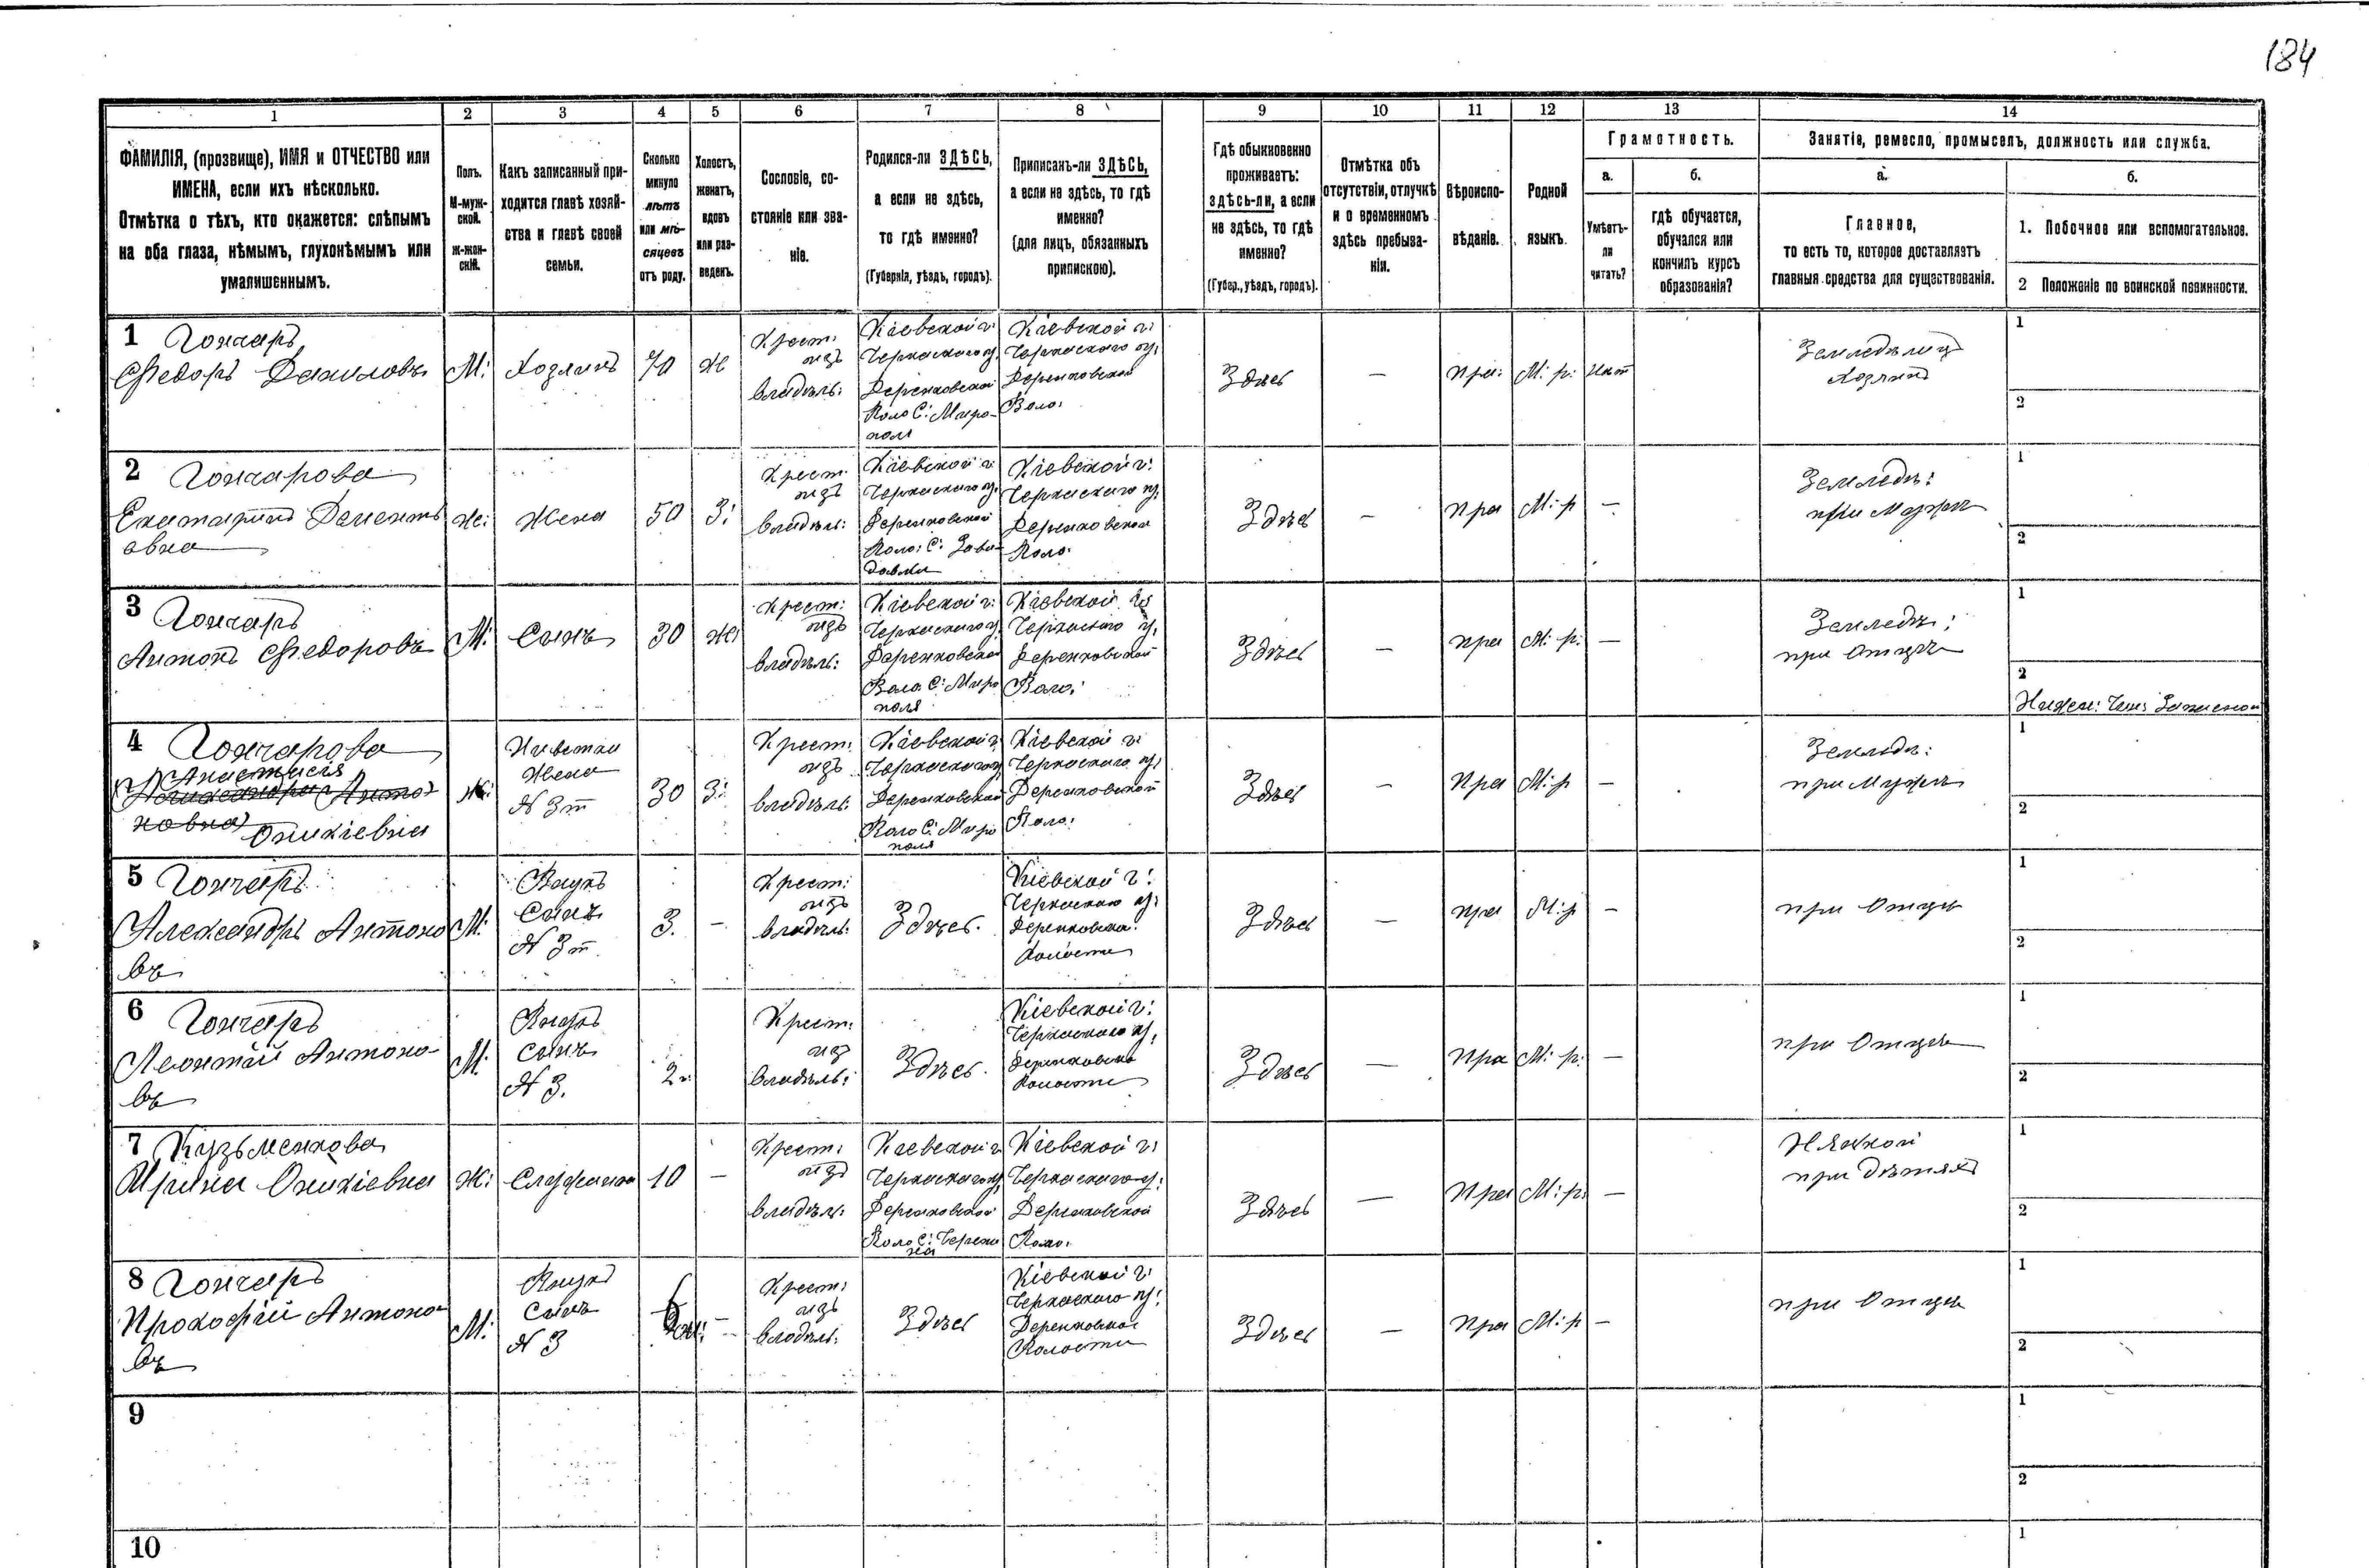 184
1
2
3
4
5
6
7
8
9
10
11
12
13
14
ФАМИЛІЯ, (прозвище), ИМЯ и ОТЧЕСТВО или
ИМЕНА, если ихъ нѣсколько.
Отмѣтка о тѣхъ, кто окажется: слѣпымъ
на оба глаза, нѣмымъ, глухонѣмымъ или
умалишеннымъ.
Полъ.
М-муж-
ской.
Ж-жен-
скій.
Какъ записанный при-
ходится главѣ хозяй-
ства и главѣ своей
семьи.
Сколько
минуло
лѣтъ
или мѣ-
сяцевъ
отъ роду.
Холостъ,
женатъ,
вдовъ
или раз-
веденъ.
Сословіе, со-
стояніе или зва-
ніе.
Родился-ли ЗДѢСЬ,
а если не здѣсь,
то гдѣ именно?
(Губернія, уѣздъ, городъ).
Приписанъ-ли ЗДѢСЬ,
а если не здѣсь, то гдѣ
именно?
(для лицъ, обязанныхъ
припискою).
Гдѣ обыкновенно
проживаетъ:
здѣсь-ли, а если
не здѣсь, то гдѣ
именно?
(Губер., уѣздъ, городъ).
Отмѣтка объ
отсутствіи, отлучкѣ
и о временномъ
здѣсь пребыва-
ніи.
Вѣроиспо-
вѣданіе.
Родной
языкъ.
Грамотность.
а.
Умѣетъ-
ли
читать?
б.
гдѣ обучается,
обучался или
кончилъ курсъ
образованія?
Занятіе, ремесло, промыселъ, должность или служба.
а.
Главное,
то есть то, которое доставляетъ
главныя средства для существованія.
б.
1. Побочное или вспомогательное.
2 Положеніе по воинской повинности.
1 Гончаръ
Федоръ Даниловъ
М:
Хозяинъ
70
Ж
Крест:
изъ
владѣль:
Кіевской г:
Черкаскаго у.
Деренковской
Воло С: Миро-
поля
Кіевской г:
Черкаскаго у:
Деренковской
Воло:
Здѣсь
—
пра:
М: р:
нѣт
Земледѣлец
Хозяинъ
1
2
2 Гончарова
Екатерина Демент
овна
Ж:
Жена
50
З:
Крест:
изъ
владѣль:
Кіевской г:
Черкаскаго у.
Деренковской
Воло: С: Зава-
довки
Кіевской г:
Черкаскаго у:
Деренковской
Воло:
Здѣсь
—
пра
М: р
—
Земледѣ:
при Мужѣ
1
2
3 Гончаръ
Антонъ Федоровъ
М:
Сынъ
30
Ж:
Крест:
изъ
владѣль:
Кіевской г:
Черкаскаго у.
Деренковской
Воло С: Миро
поля
Кіевской г:
Черкаскаго у.
Деренковской
Воло:
Здѣсь
—
пра
М: р:
—
Земледѣ:
при Отцѣ
1
2
4 Гончарова
Анастасія
Оникіевна
Ж:
Невѣстка
Жена
N 3т
30
З:
Крест:
изъ
владѣль:
Кіевской г:
Черкаскаго у
Деренковской
Воло С: Миро
поля
Кіевской г:
Черкаскаго у:
Деренковской
Воло:
Здѣсь
—
пра
М: р
—
Земледѣ:
при Мужѣ
1
2
5 Гончаръ
Александръ Антоно
въ
М:
Внукъ
Сынъ
N 3т
3.
—
Крест:
изъ
владѣль:
Здѣсь.
Кіевской г:
Черкаскаго у:
Деренковской
Волости
Здѣсь
—
пра
М: р
—
при Отцѣ
1
2
6 Гончаръ
Леонтій Антоно-
въ
М:
Внукъ
сынъ
N 3.
2
Крест:
изъ
владѣль:
Здѣсь.
Кіевской г:
Черкаскаго у:
Деренковской
Волости
Здѣсь
—
пра
М: р:
—
при Отцѣ
1
2
7 Кузьменкова
Ирина Оникіевна
Ж:
Служанка
10
—
Крест:
изъ
владѣль:
Кіевской г
Черкаскаго у
Деренковской
Воло С:
Кіевской г:
Черкаскаго у:
Деренковской
Воло:
Здѣсь
—
пра
М: р:
—
Нянкой
при дѣтяхъ
1
2
8 Гончаръ
Прокофій Антоно-
въ
М:
Внукъ
Сынъ
N 3
—
Крест:
изъ
владѣль:
Здѣсь
Кіевской г:
Черкаскаго у:
Деренковской
Волости
Здѣсь
—
пра
М: р
—
при Отцѣ
1
2
9
1
2
10
1